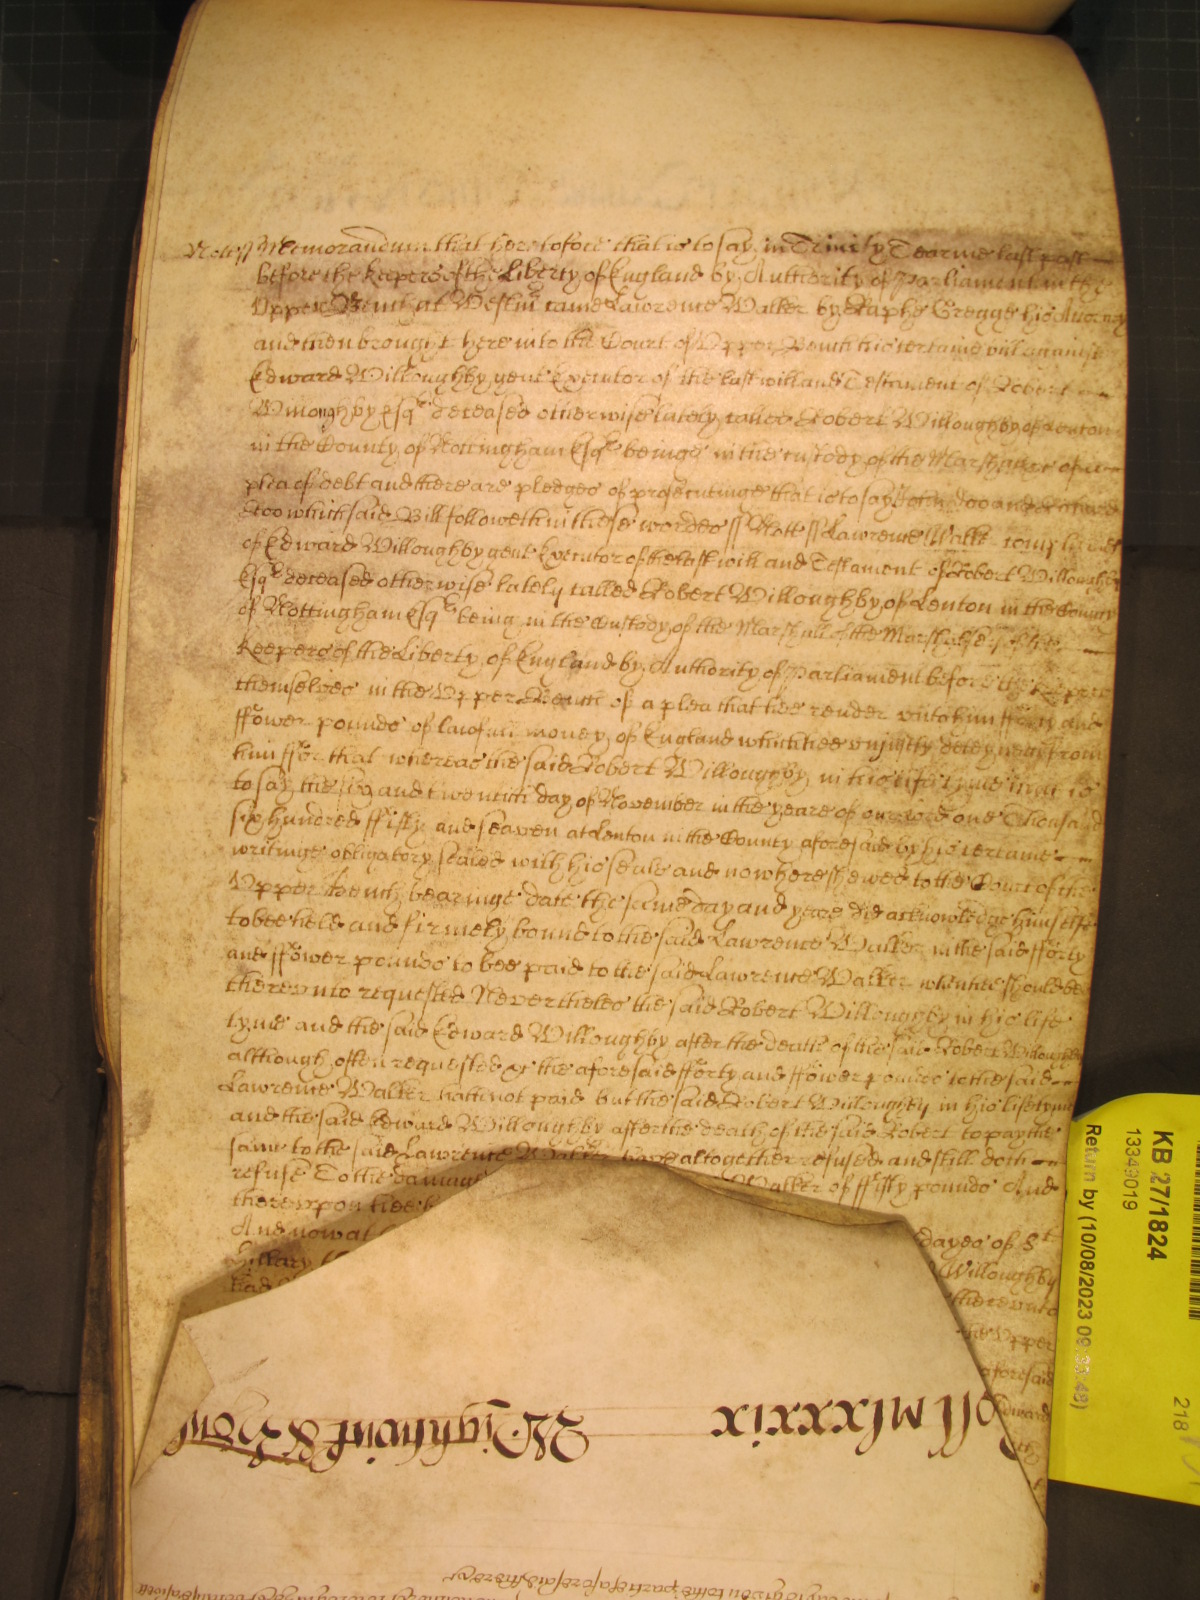 Nott ss Memorandum that heretofore that is to say in Trinity Tearme last past
before the Keepers of the Liberty of England by Authority of Parliament in the
Upper Bench at Westm came Lawrence Walker by Raphe Gregge his Attorney
and then brought here into the Court of Upper Bench his certaine bill against
Edward Willoughby gent Executor of the last will and Testament of Robert
Willoughby Esqr deceased otherwise lately called Robert Willoughby of Lenton
in the County of Nottingham Esqr beinge in the custody of the Marshall &c of a
plea of debt and there are pledges of prosecutinge that is to say John Doo and Richard
Roo which said Bill followeth in these wordes ss Nott ss Lawrence Walker complaines
of Edward Willoughby gent Executor of the last will and Testament of Robert Willoughby
Esqr deceased otherwise lately called Robert Willoughby of Lenton in the County
of Nottingham Esqr being in the Custody of the Marshall of the Marshalsey of the
Keepers of the Liberty of England by Authority of Parliament before the Keepers
themselves in the Upper Bench of a plea that hee render unto him fforty and
ffower pounds of lawfull money of England which hee unjustly deteyneth from
him ffor that whereas the said Robert Willoughby in his life tyme that is
to say the six and twentith day of November in the yeare of our Lord one Thousand
six hundred ffifty and seaven at Lenton in the County aforesaid by his certaine
writinge obligatory sealed with his seale and now here shewed to the Court of the
Upper Bench bearinge date the same day and yeare did acknowledge himselfe
to bee held and firmely bound to the said Lawrence Walker in the said fforty
and ffower pounds to bee paid to the said Lawrence Walker when hee should be
thereunto requested Neverthelес the said Robert Willoughby in his life
tyme and the said Edward Willoughby after the death of the said Robert Willoughby
although often requested &c the aforesaid fforty and ffower pounds to the said
Lawrence Walker hath not paid but the said Robert Willoughby in his lifetyme
and the said Edward Willoughby after the death of the said Robert to pay the
same to the said Lawrence Walker have altogether refused and still doth
refuse To the damage Walker of ffifty pounds And
thereupon hee b
And now at dayes of St
Hillary Willoughby
had thereunto
the Upper
aforesaid
Edward
Roll mlxxxix Wightwick & Dow
day is given to the parties aforesaid there &c
KB 27/1824
13349019
Return by (10/08/2023 09:33:49)
218